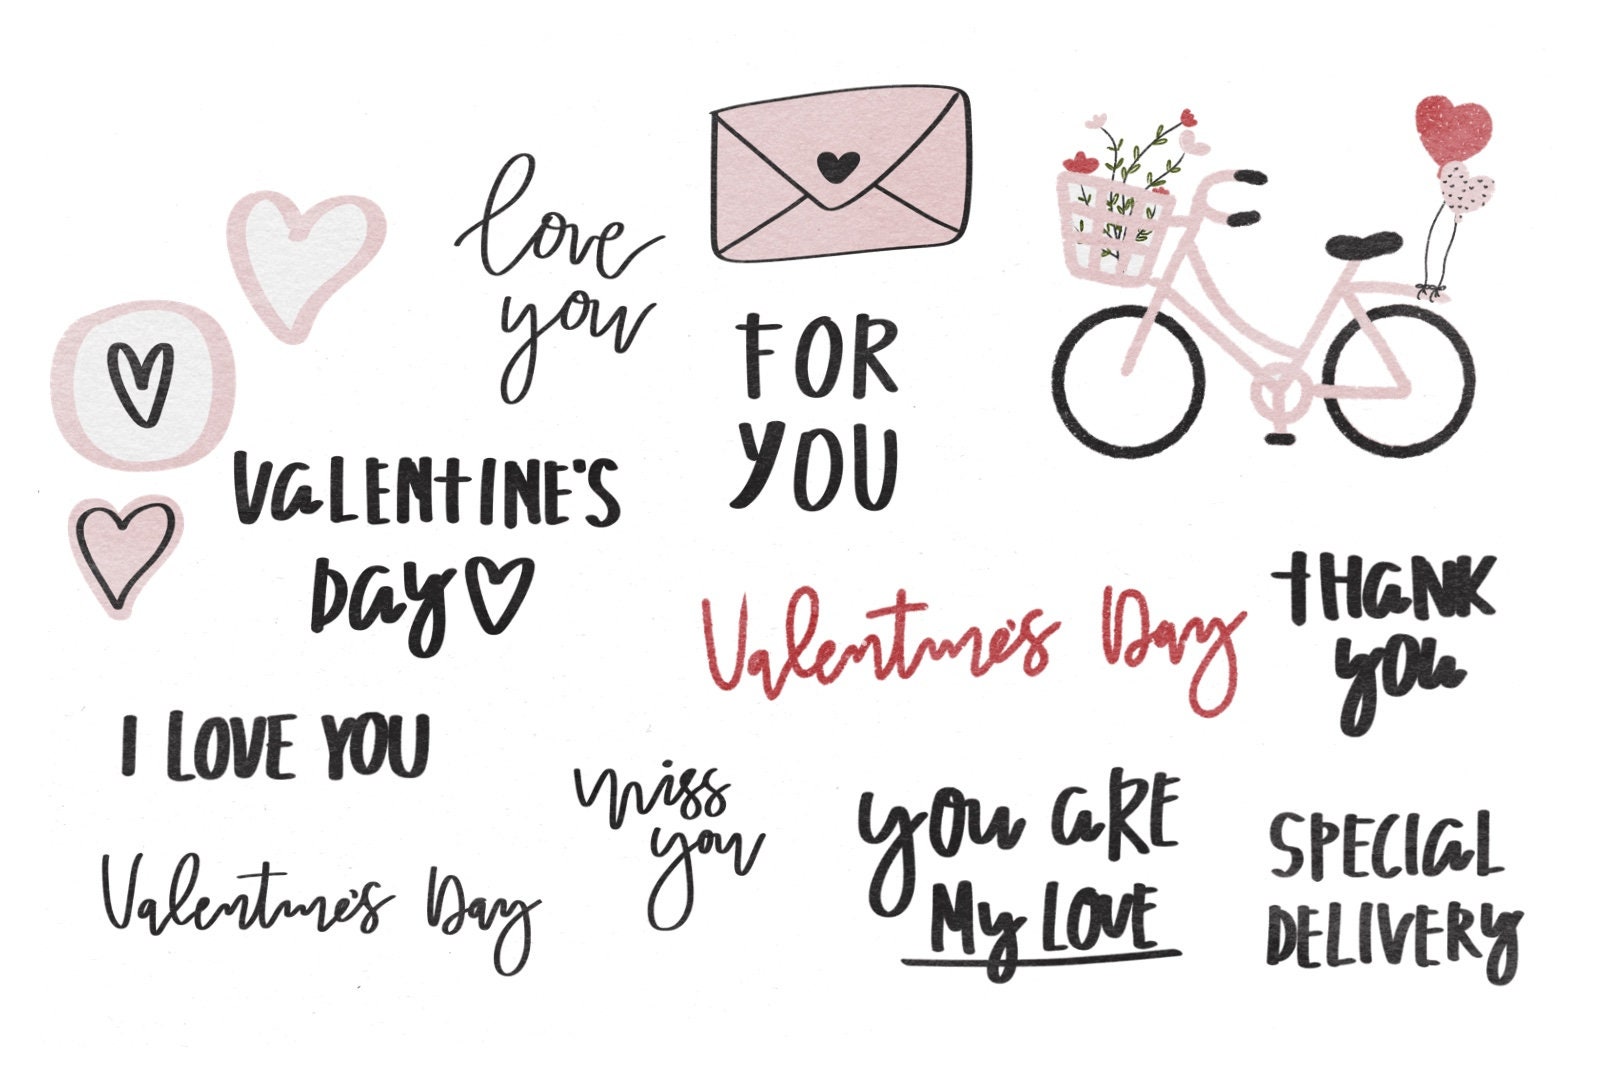 love
you
FOR
YOU
VaLENTINE'S
Day
Valentine's Day
THaNK
you
I LOVE YOU
miss
you
Valentine's Day
you aRE
My LOVE
SPECIaL
DELIVERy